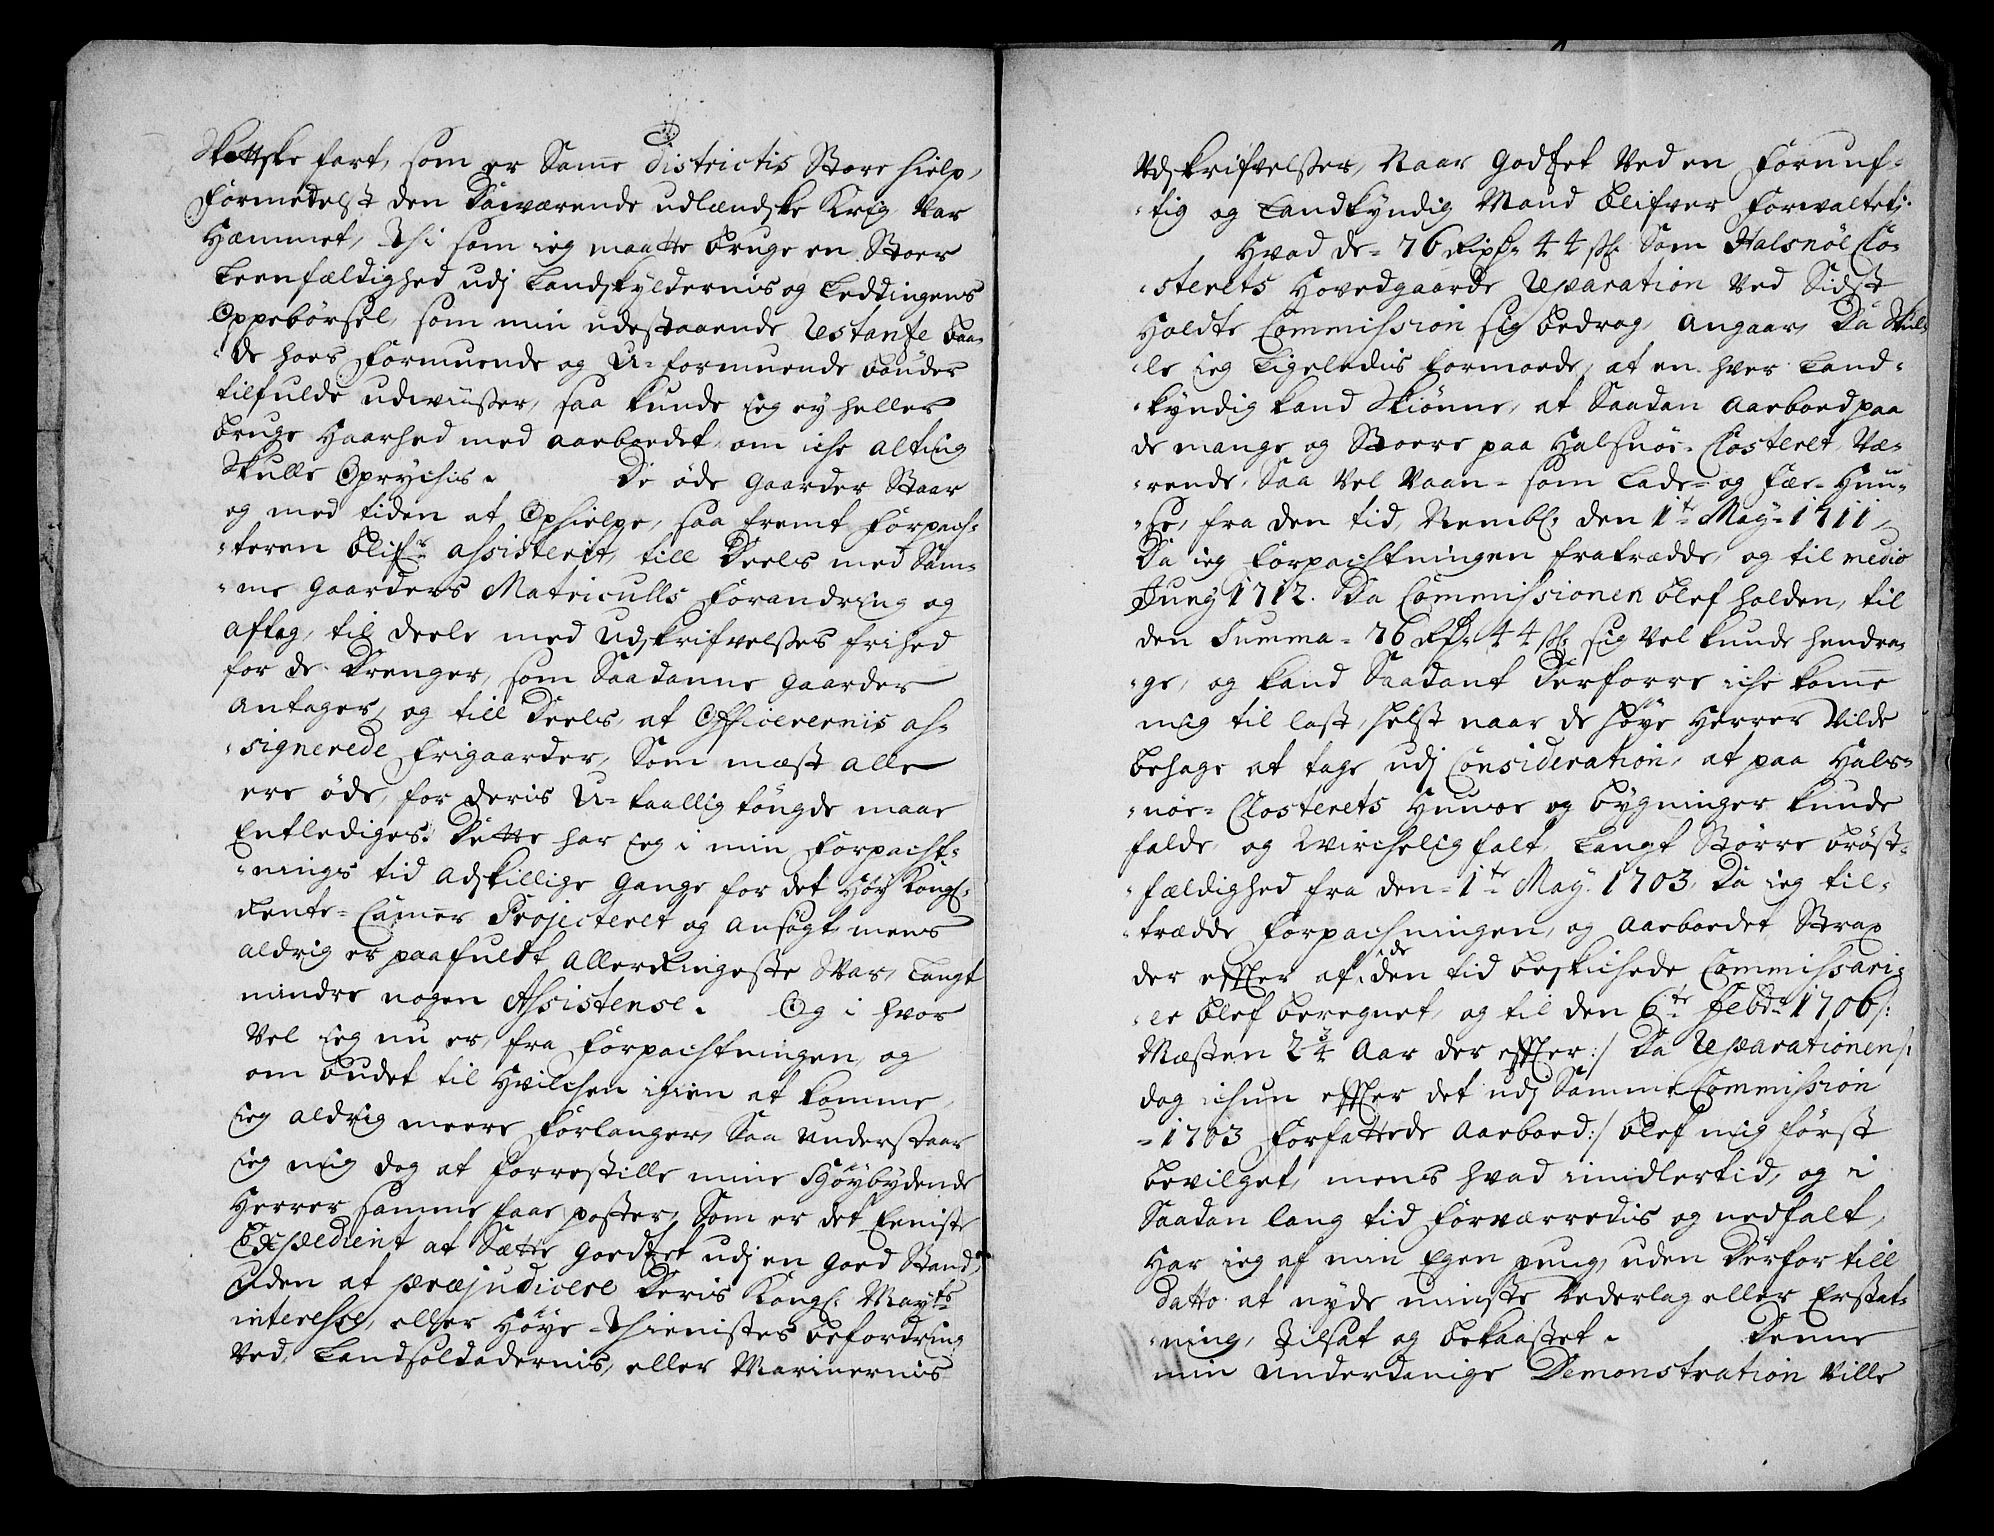 Skottske fart, som er Same Districtis Store hielp,
Formedelst den Daværende udlændske Krig Var
Hæmmet, Thi som ieg maatte bruge en Stoer
Leenfældighed udj Landskyldernis og Leddingens
Oppebörsel, som min udestaaende Restantze baa-
de hoes Formuende og U-formuende bönder
tilfulde udwiißer, saa kunde ieg ey heller
bruge Haarhed med aarboedet, om iche alting
Skulle Oprychis. De öde Gaarder Staar
og med tiden at Ophielpe, saa fremt Forpach-
-teren blifr assisterit, till Deels med Sam-
-me Gaarders Matriculls Forandring og
aftag, til deels med Udskrifvelßes frihed
for de Drenger, som Saadanne Gaarder
Antager, og till Deels, at Officerernis as-
-signerede Frigaarder, Som mæst alle
ere öde, for deris U-taallig töngde maae
Entlediges. Dette har ieg i min Forpacht-
-nings tid adskillige Gange for det Höy Kongl:
Rente-Camer Projecteret og ansögt, mens
aldrig er paafuldt allerringeste Svar, Langt
mindre nogen Assistense. Og i hvor
Vel ieg nu er, fra Forpachtningen, og
om budet til Hvilchen igien at komme,
ieg aldrig meere Forlanger, Saa Understaar
ieg mig dog at forrestille mine Höybydende
Herrer samme faae poster, Som er det Eeniste
Expedient at Sætte Goedtzet udj en Goed Stand,
Uden at præjudicere Deris Kongl: Mayts
interesse, eller Höye Thienistes befordring
Ved, Landsoldadernis, eller Marinernis
Udskrifvelßer, Naar Godtzet Ved en Fornuf-
-tig og Landkyndig Mand blifver Forvaltet:
Hvad de- 76 Rixdr 44 sk: Som Halsnöe Clo-
-sterets Hovedgaards Reparation Ved Sidst
Holdte Commission sig bedrog, Angaar, Da Skul-
-le ieg Ligeledis formoede, at en hver Land-
-kyndig kand Skiönne, at Saadan Aarboed paa
de mange og Stoere paa Halsnöe-Closteret, Væ-
-rende, Saa Vel Vaan- som Lade- og Fæe-Huu-
-se, fra den tid, Nembl: den 1te May 1711,
Da ieg Forpachtningen fratrædde, og til medio
Juny 1712. Da Commissionen blef holden, til
den Summa- 76 Rdr 44 sk: sig Vel kunde hendra-
-ge, og kand Saadant Derforre iche kome
mig til last, helst naar de höye Herrer Vilde
behage at tage udj Consideration, at paa Hals-
-nöe-Closterets Huuse og bygninger kunde
falde, og Wirchelig falt, Langt Större bröst-
-fældighed fra den- 1te May 1703, Da ieg til-
-trædde Forpachningen, og Aarboedet Strax
der effter af de i den tid beskichede Commissari-
-er blef beregnet, og til den 6te Febr 1706 /:
Mæsten 2¾ Aar der effter :/ Da Reparationen /:
dog ichun effter det udj Samme Commission
-1703 Forfattede Aarboed :/ blef mig först
bevilget, mens hvad imidlertid, og i
Saadan lang tid Forværredis og nedfalt,
Har ieg af min Egen pung, uden Derfor till
datto at nyde minste Vederlag eller Erstat-
-ning, tilsat og bekaastet. Denne
min underdanige Demonstration Ville